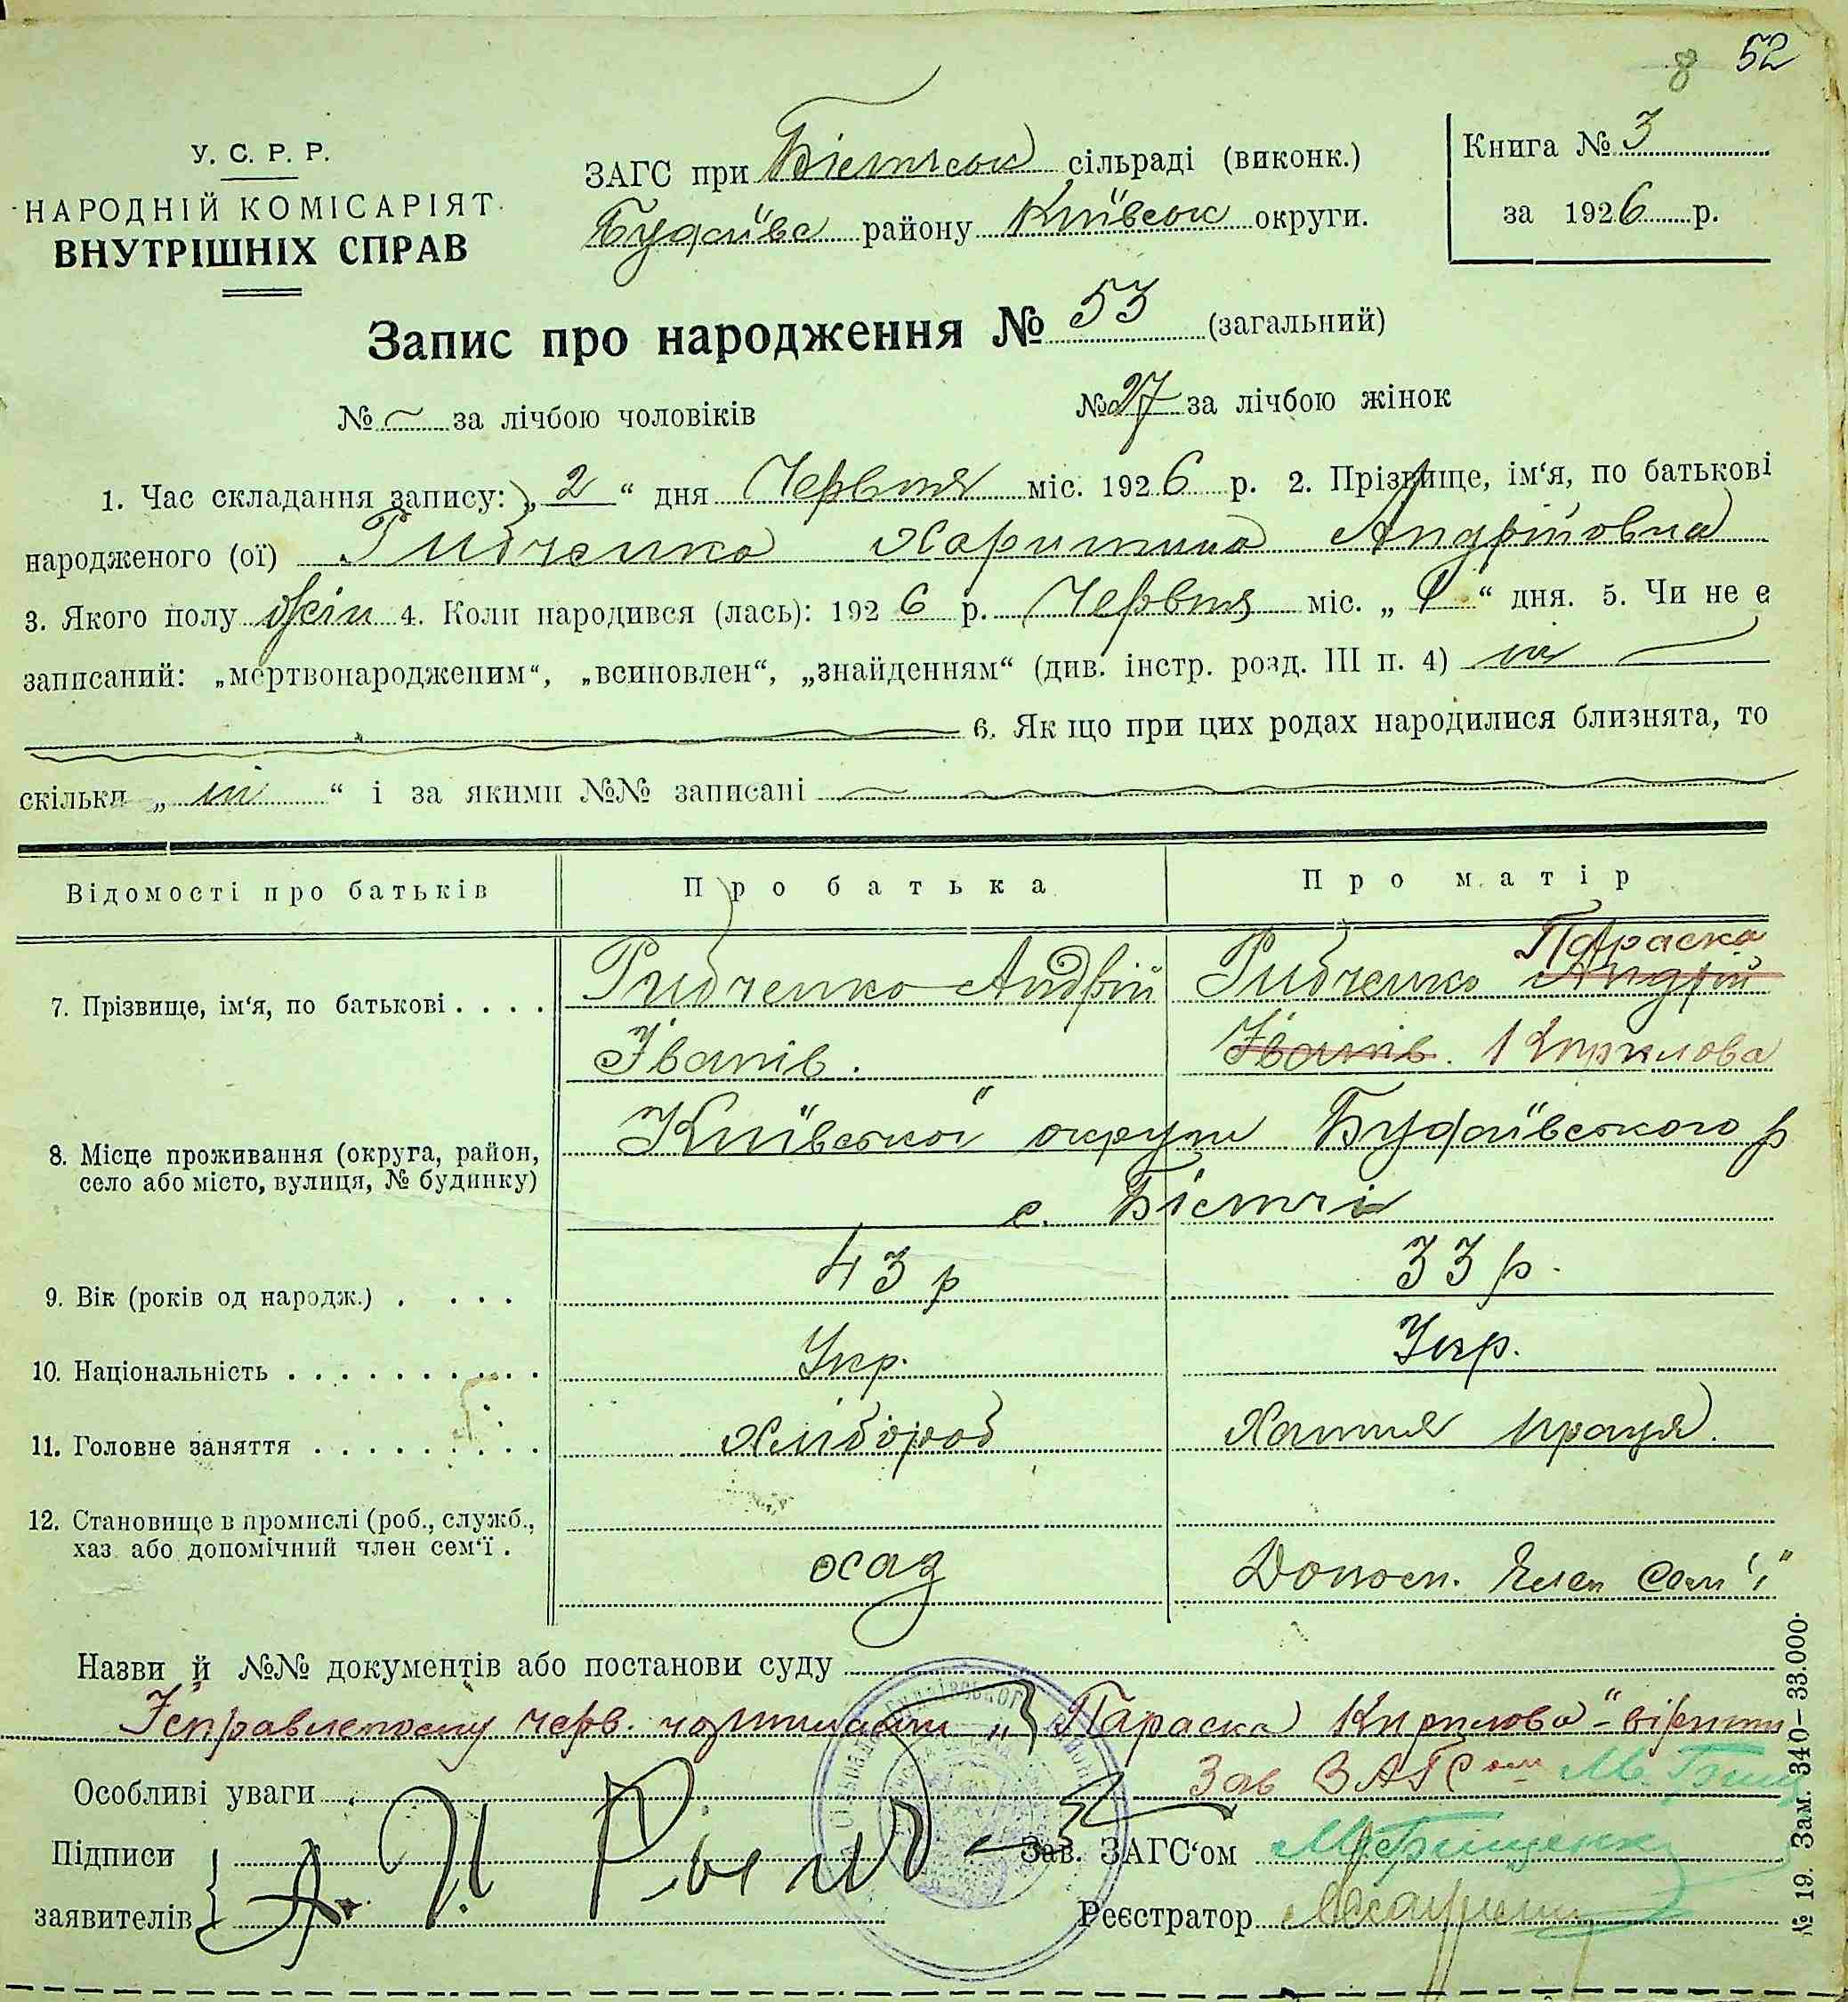 8 52
У. С. Р. Р.
НАРОДНІЙ КОМІСАРІЯТ
ВНУТРІШНІХ СПРАВ
ЗАГС при сільраді (виконк.)
Будаївс району Київськ округи.
Книга № 3
за 1926 р.
Запис про народження № 53 (загальний)
№ — за лічбою чоловіків
№ 27 за лічбою жінок
1. Час складання запису: „ 2 “ дня Червня міс. 1926 р. 2. Прізвище, ім‘я, по батькові
народженого (ої) Рибченко Харитина Андрійовна
3. Якого полу жін 4. Коли народився (лась): 1926 р. Червня міс. „ 1 “ дня. 5. Чи не є
записаний: „мертвонародженим“, „всиновлен“, „знайденням“ (див. інстр. розд. III п. 4) ні
6. Як що при цих родах народилися близнята, то
скільки „ ні “ і за якими №№ записані
Відомості про батьків
Про батька
Про матір
7. Прізвище, ім‘я, по батькові . . . .
Рибченко Андрій
Іванів.
Рибченко Андрій Параска
Іванів. Кирилова
8. Місце проживання (округа, район,
село або місто, вулиця, № будинку)
Київської округи Будаївського р
с. Бістчі
9. Вік (років од народж.) . . . .
43 р
33 р.
10. Національність . . . . . . . . . .
Укр.
Укр.
11. Головне заняття . . . . . . . . .
Хлібороб
Хатня праця.
12. Становище в промислі (роб., служб.,
хаз. або допомічний член сем‘ї .
хаз
Допом. Член Сем'ї
Назви й №№ документів або постанови суду
Ісправленому черв. чорнилами „Параска Кирилова“ - вірити
Зав ЗАГСом
Особливі уваги
Підписи
заявителів
Зав. ЗАГС‘ом
Реєстратор
№ 19. Зам. 340—33.000.